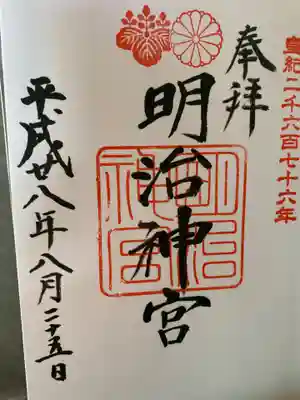 皇紀二千六百七十六年
奉拝
明治神宮
明治神宮
平成廿八年八月二十五日